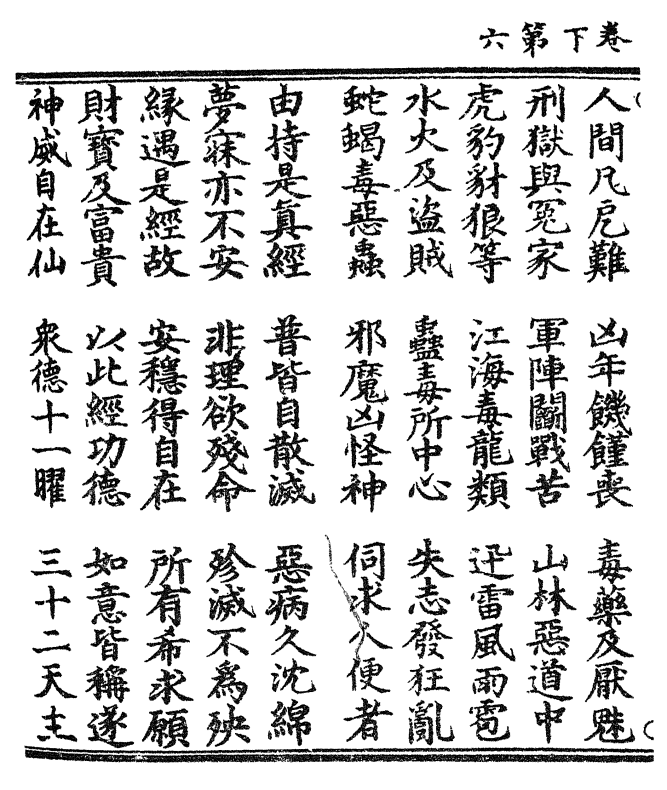 卷下第六
人間凡戹難　凶年饑饉喪　毒藥及厭魅
刑獄與冤家　軍陣鬭戰苦　山林惡道中
虎豹豺狼等　江海毒龍類　迅雷風雨雹
水火及盜賊　蠱毒所中心　失志發狂亂
蛇蝎毒惡蟲　邪魔凶怪神　伺求人便者
由持是眞經　普皆自散滅　惡病久沈綿
夢寐亦不安　非理欲殘命　殄滅不爲殃
緣遇是經故　安穩得自在　所有希求願
財寶及富貴　以此經功德　如意皆稱遂
神威自在仙　衆德十一曜　三十二天主